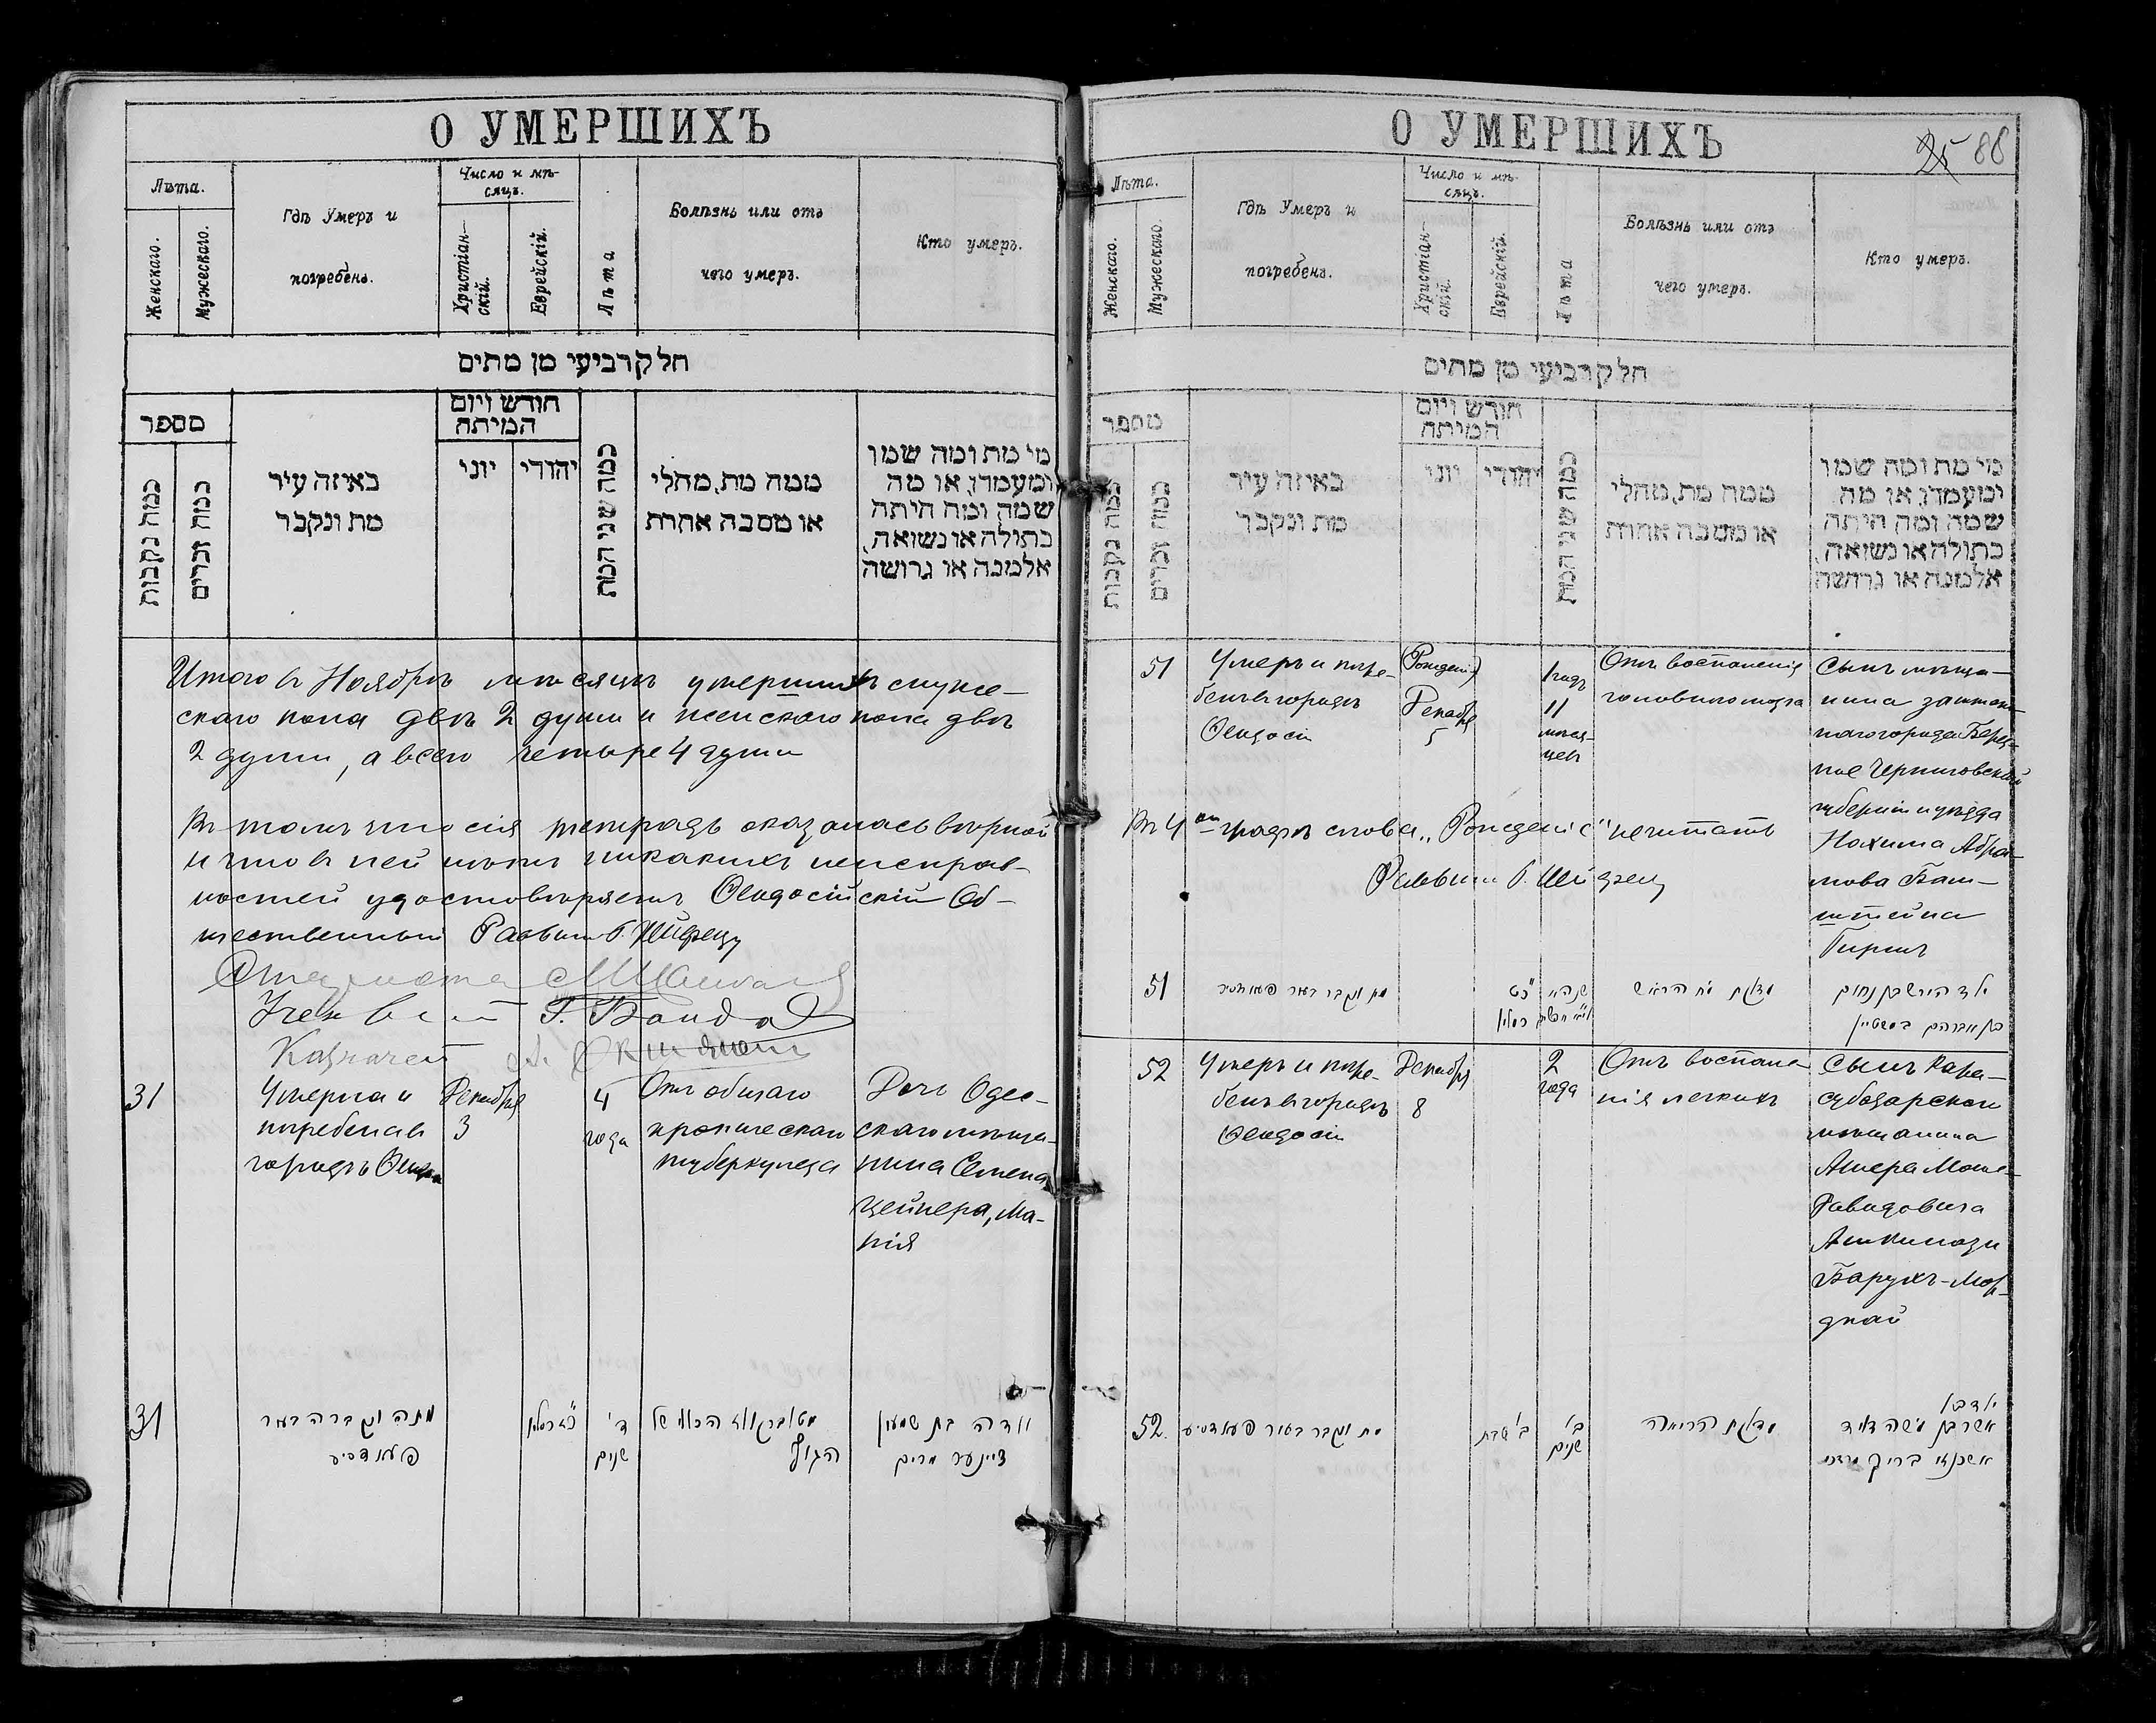 О УМЕРШИХЪ
Лѣта.
Женскаго.
Мужескаго.
Гдѣ Умеръ и
погребенъ.
Число и мѣ-
сяцъ.
Христіан-
скій.
Еврейскій.
Лѣта
Болѣзнь или отъ
чего умеръ.
Кто умеръ.
חלק רביעי מן מתים
מספר
כמה נקבות
כמה זכרים
באיזה עיר
מת ונקבר
חודש ויום
המיתה
יוני
יהודי
כמה שני המת
ממה מת, מחלי
או מסבה אחרת
מי מת ומה שמו
ומעמדו, או מה
שמה ומה היתה
בתולה או נשואה,
אלמנה או גרושה
Итого въ Ноябрѣ мѣсяцѣ умершихъ муже-
скаго пола двѣ 2 души и женскаго пола двѣ
2 души, а всего четыре 4 души
Въ томъ что сія тетрадь оказалась вѣрной
и что въ ней нѣтъ никакихъ неисправ-
ностей удостовѣряетъ Ѳеодосійскій Об-
щественный Раввинъ
Староста
Г. Бондар
Казначей
31
Умерла и
погребена въ
городѣ
Декабря
3
4
года
Отъ общаго
хроническаго
туберкулеза
Дочь Одес-
скаго мѣща-
нина Семена
Цейнера, Ма-
нія
31
מתה ונקברה בעיר
פעאדסיע
כסליו
ד'
שנים
הגוף
בת שמעון
ציינער מרים
О УМЕРШИХЪ
25 88
Лѣта.
Женскаго.
Мужескаго.
Гдѣ Умеръ и
погребенъ.
Число и мѣ-
сяцъ.
Христіан-
скій.
Еврейскій.
Лѣта
Болѣзнь или отъ
чего умеръ.
Кто умеръ.
חלק רביעי מן מתים
מספר
כמה נקבות
כמה זכרים
באיזה עיר
מת ונקבר
חודש ויום
המיתה
יוני
יהודי
כמה שני המת
ממה מת, מחלי
או מסבה אחרת
מי מת ומה שמו
ומעמדו, או מה
שמה ומה היתה
בתולה או נשואה,
אלמנה או גרושה
51
Умеръ и погре-
бенъ въ городѣ
Ѳеодосіи
(Рожденіе)
Декабря
5
1 годъ
11
мѣся-
цевъ
Отъ воспаленія
головного мозга
Сынъ мѣща-
нина заштат-
наго города Берез-
ное Черниговской
губерніи и уѣзда
Нохима Абра-
мова Баш-
штейна
Гиршъ
Въ 4ой графѣ слова „Рожденіе" не читать
Раввинъ
51
מת ונקבר בעיר פעאדסיע
כט
כסליו
ילד הירש בן נחום
בן אברהם
52
Умеръ и погре-
бенъ въ городѣ
Ѳеодосіи
Декабря
8
2
года
Отъ воспале-
нія легкихъ
Сынъ Кара-
субазарскаго
мѣщанина
Ашера Моше-
Давидовича
Ашкинази
Барухъ-Мор-
дхай
52.
מת ונקבר בעיר פעאדסיע
ב' טבת
ב'
שנים
מדלקת הריאה
ילד בן
אשר בן משה דוד
אשכנזי ברוך מרדכי